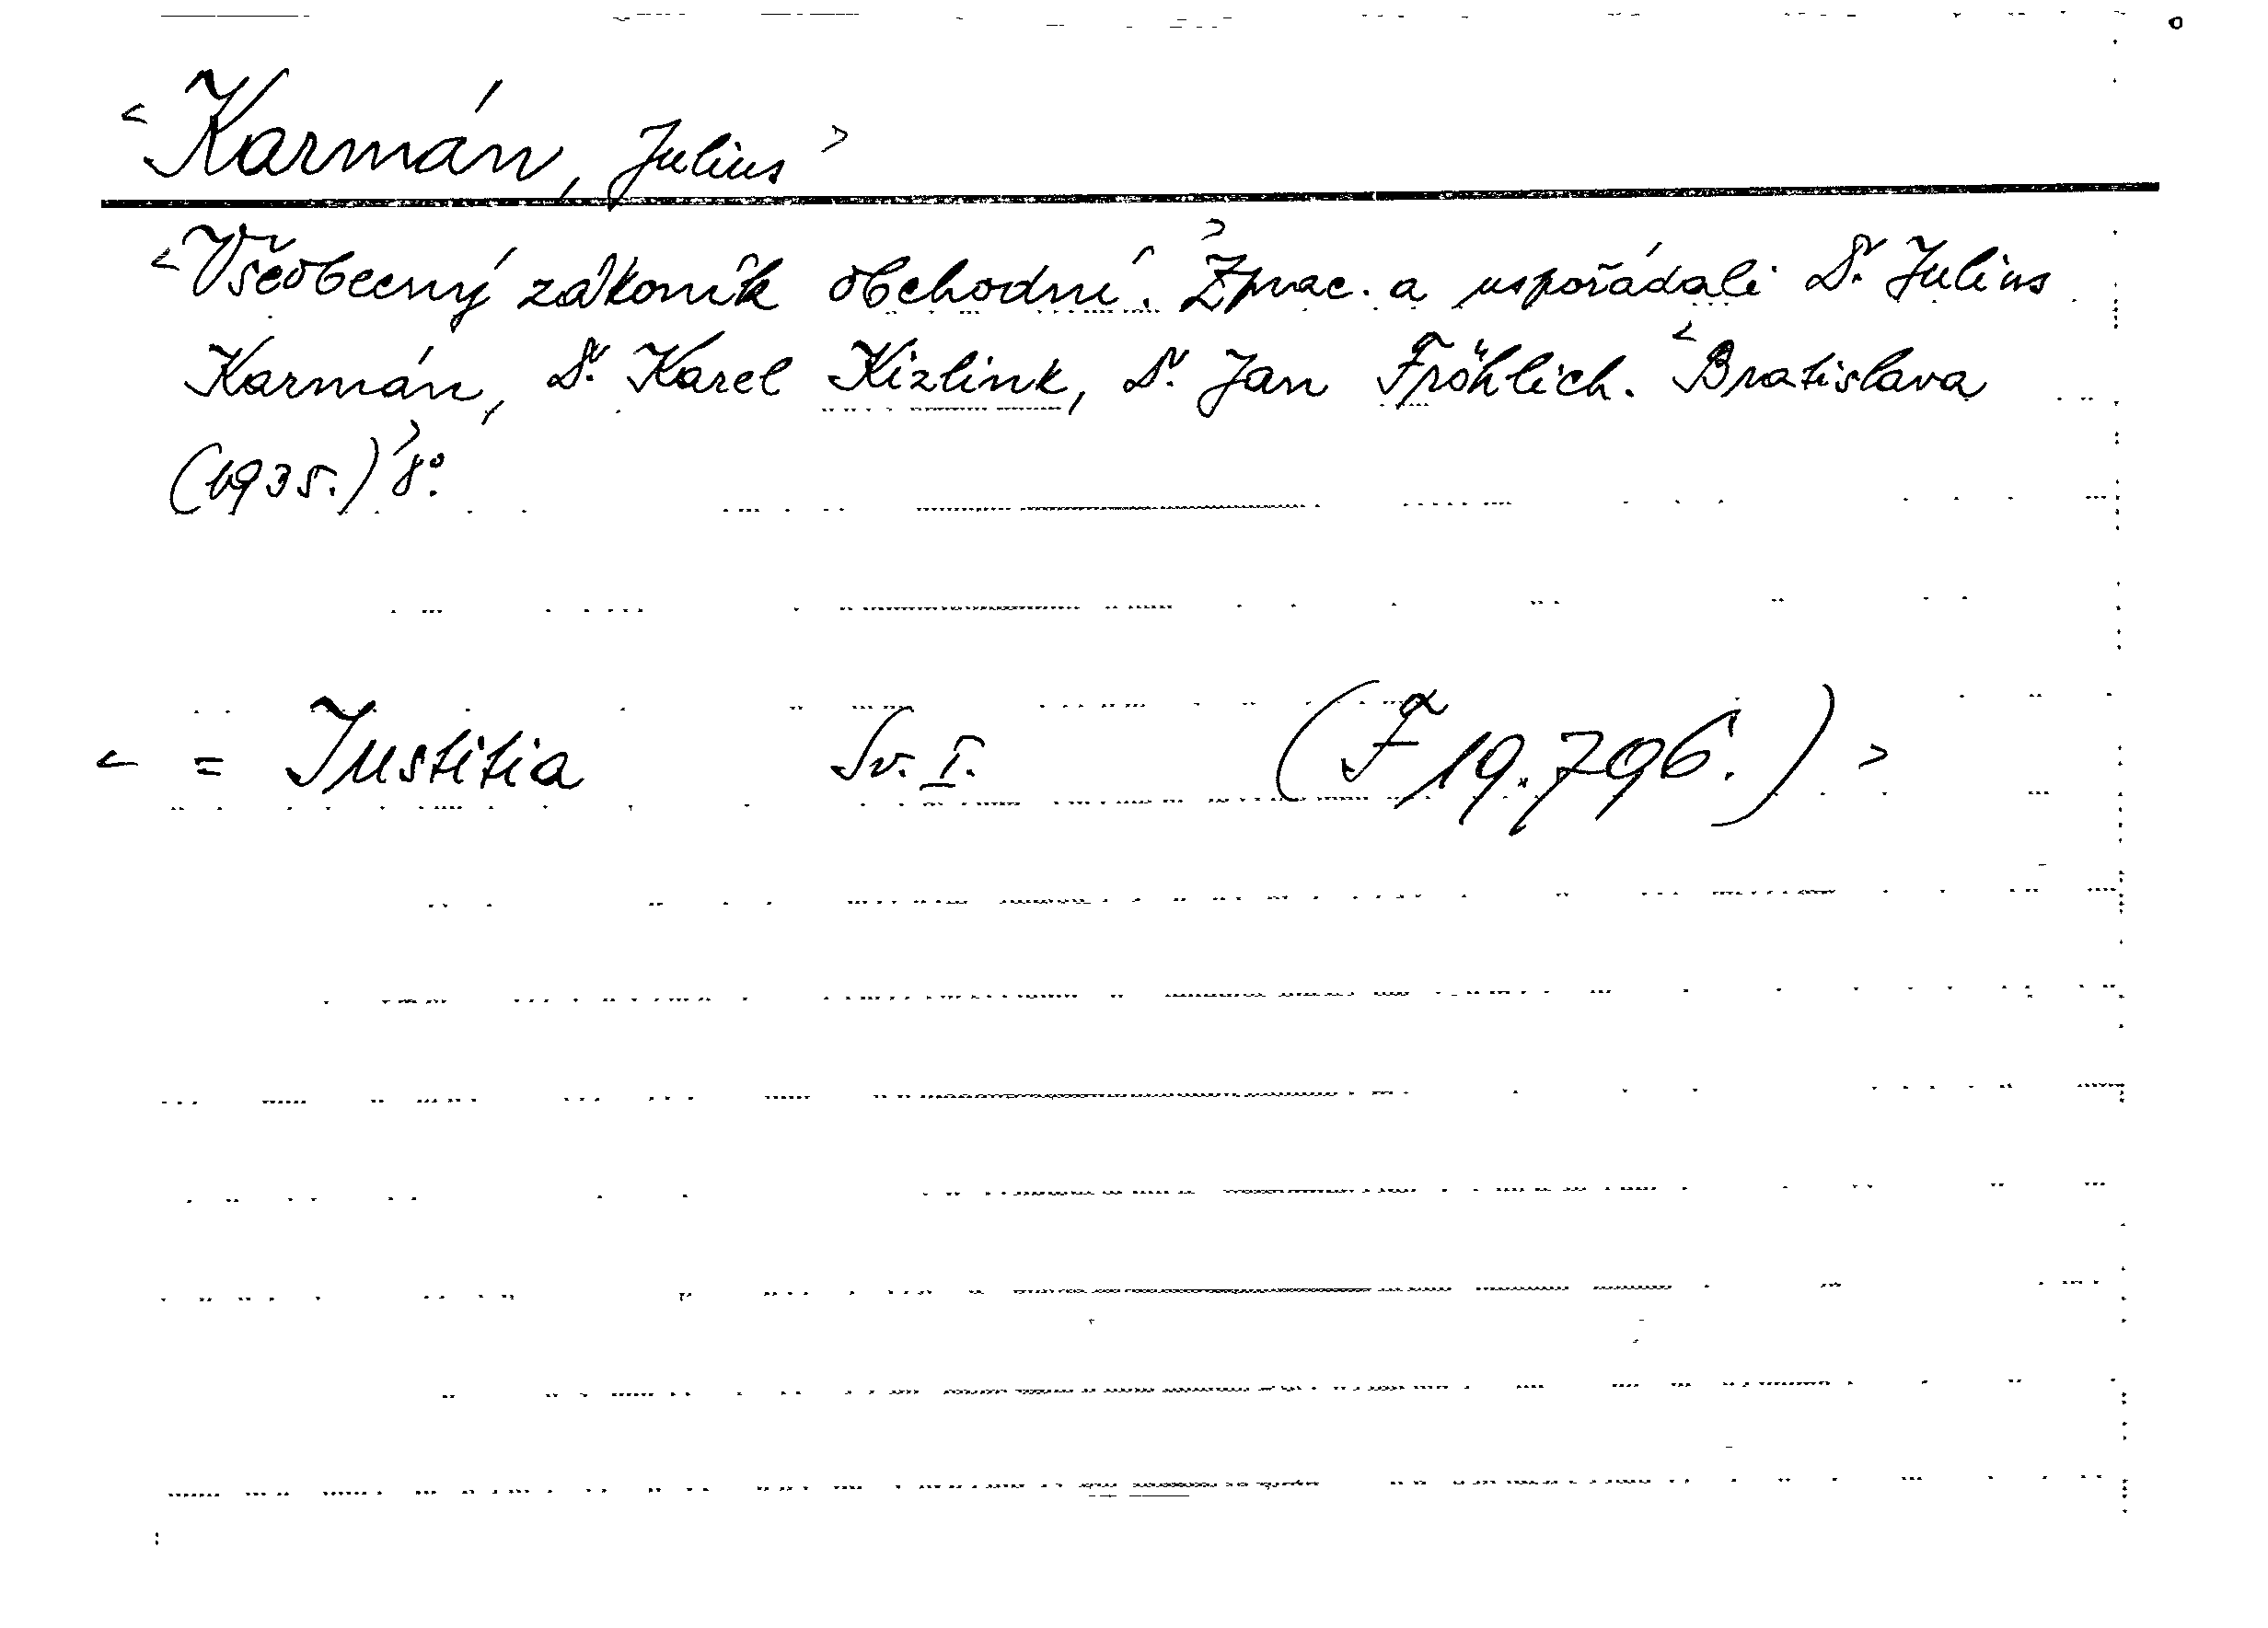 <Karmán, Julius>
<Všeobecný zákoník obchodní.> Zprac. a uspořádali Dr. Julius
Karmán, Dr. Karel Kizlink, Dr. Jan Fröhlich. <Bratislava
(1935.)> 8°.
< = Justitia Sv. I. (F 19.796.) >